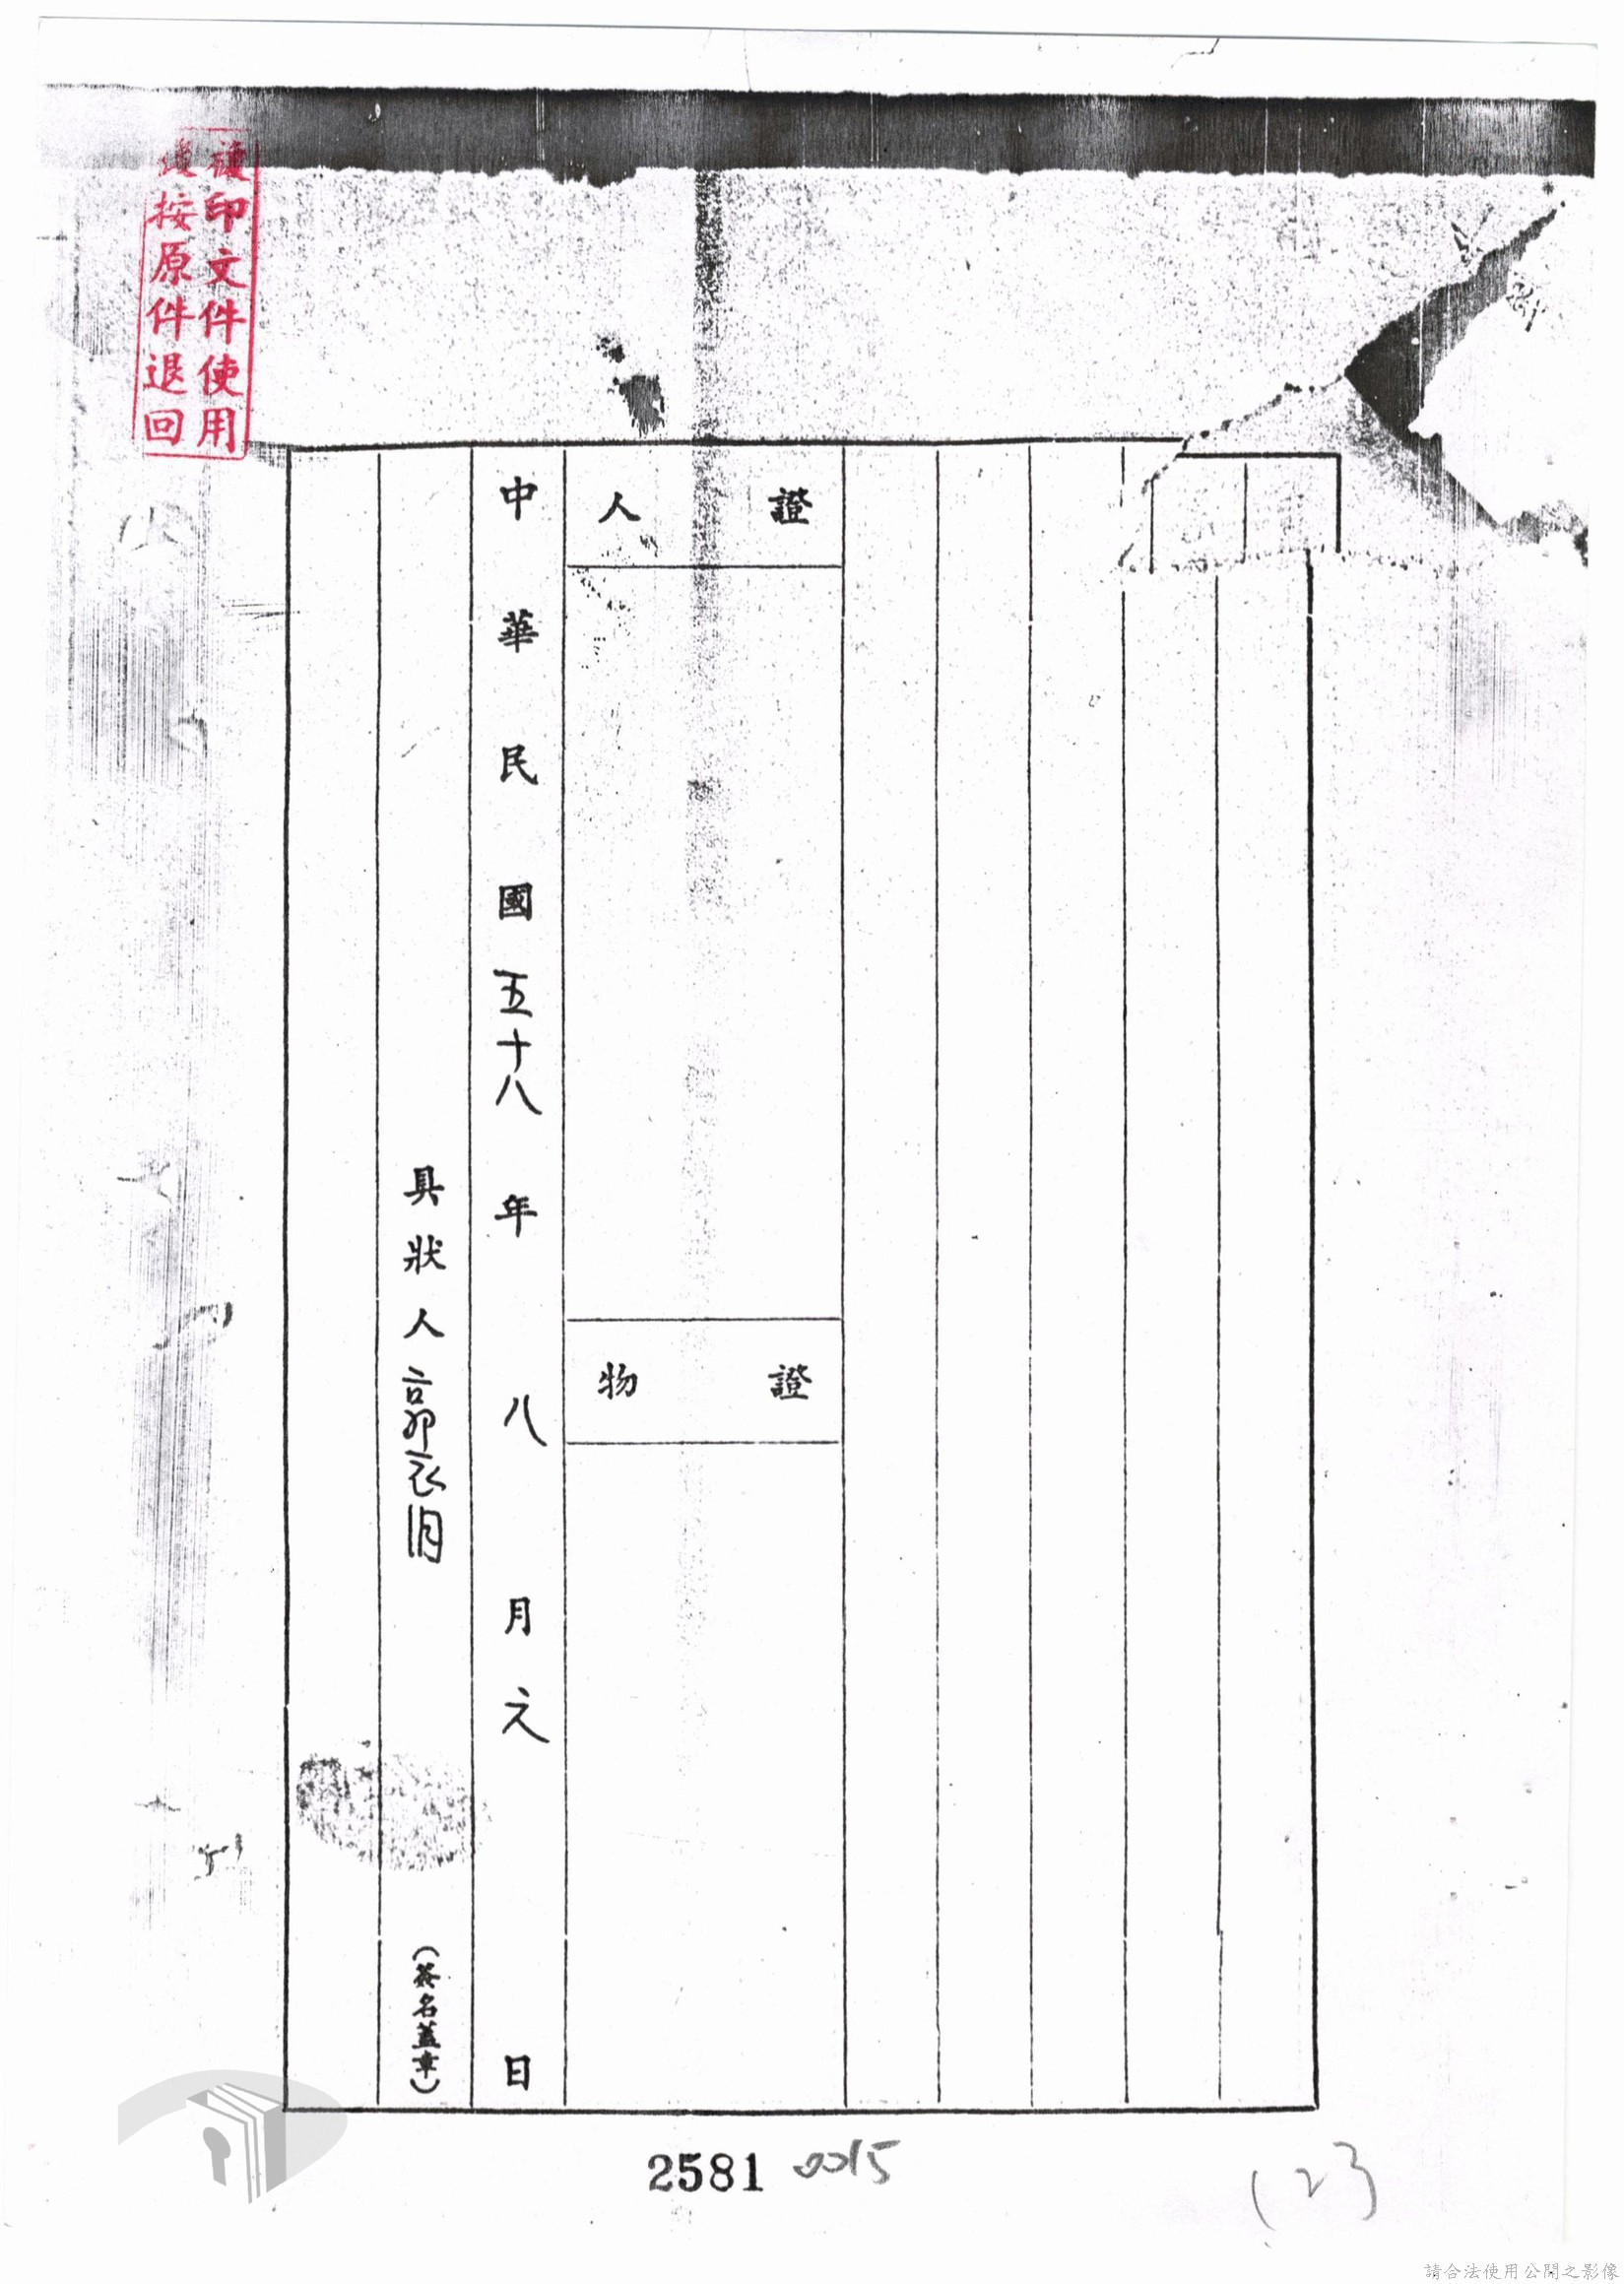 證人
證物
中華民國五十八年八月元日
具狀人郭衣洞
(簽名蓋章)
複印文件使用
後按原件退回
2581
0015
123
請合法使用公開之影像